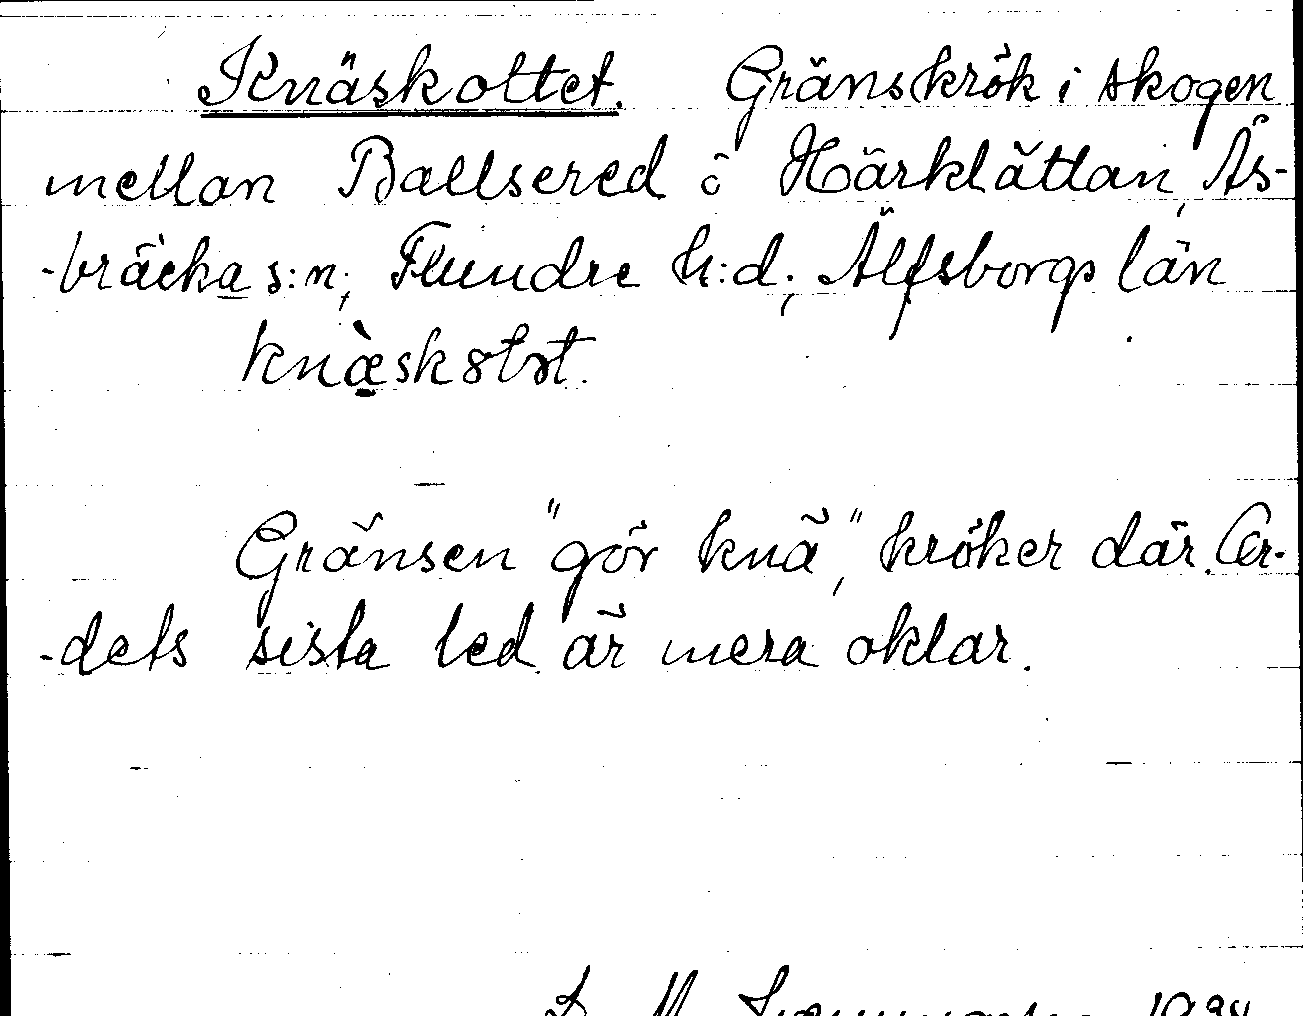 Knäskottet. Gränskrök i skogen
mellan Ballsered o Härklättan, Ås-
-bräcka s:n, Flundre h:d, Älfsborgs län
knæ̀skɔtət.
Gränsen "gör knä", kröker där. Or-
-dets sista led är mera oklar.